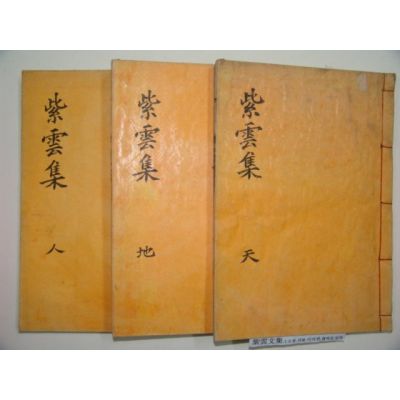 紫雲集
天
紫雲集
地
紫雲集
人
紫雲文集